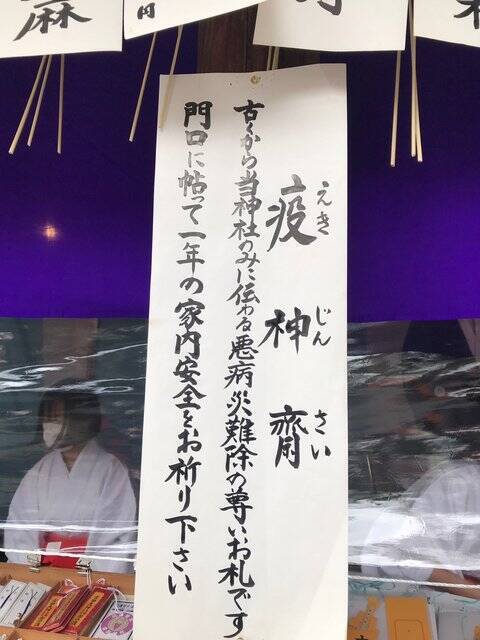 疫神齋
えき じん さい
古くから当神社のみに伝わる悪病災難除の尊いお札です
門口に帖って一年の家内安全をお祈り下さい
麻
円